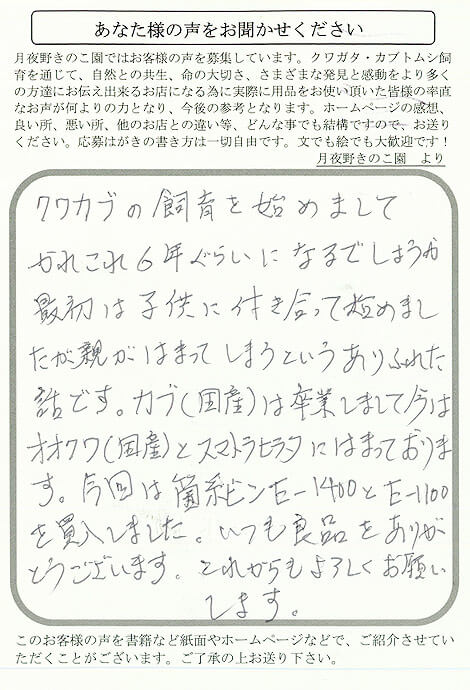 あなた様の声をお聞かせください
月夜野きのこ園ではお客様の声を募集しています。クワガタ・カブトムシ飼
育を通じて、自然との共生、命の大切さ、さまざまな発見と感動をより多く
の方達にお伝え出来るお店になる為に実際に用品をお使い頂いた皆様の率直
なお声が何よりの力となり、今後の参考となります。ホームページの感想、
良い所、悪い所、他のお店との違い等、どんな事でも結構ですので、お送り
ください。応募はがきの書き方は一切自由です。文でも絵でも大歓迎です！
月夜野きのこ園 より
クワカブの飼育を始めまして
かれこれ6年ぐらいになるでしょうか
最初は子供に付き合って始めまし
たが親がはまってしまうというありふれた
話です。カブ(国産)は卒業しまして今は
オオクワ(国産)とスマトラヒラタにはまっておりま
す。今回は菌糸ビンE-1400とE-1100
を買入しました。いつも良品をありが
とうございます。これからもよろしくお願い
します。
このお客様の声を書籍など紙面やホームページなどで、ご紹介させてい
ただくことがございます。ご了承の上お送り下さい。